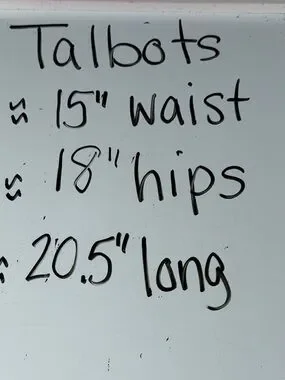 Talbots
≈ 15" waist
≈ 18" hips
≈ 20.5" long